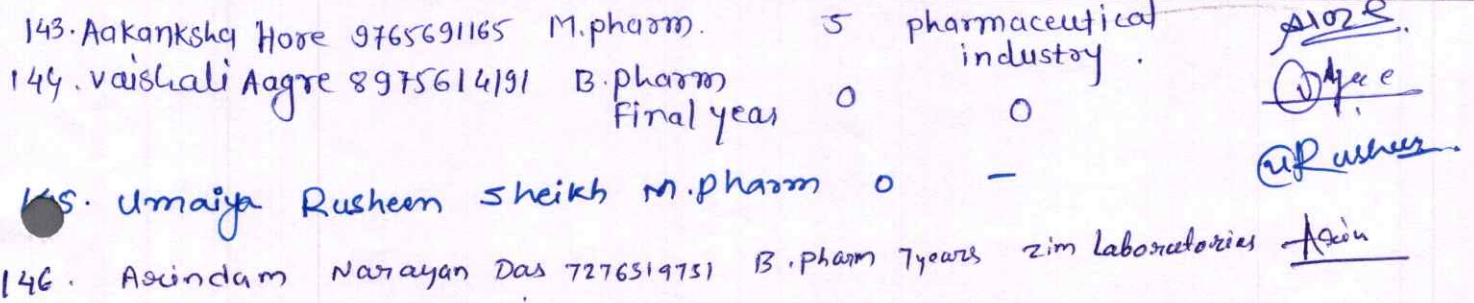 143. Aakanksha Hore 9765691165 M.pharm. 5 pharmaceutical
industry.
144. Vaishali Aagre 8975614191 B.pharm 0 0
Final year
Umaiya Rusheen Sheikh M.pharm 0 -
146. Arindam Narayan Das 7276519751 B.pharm 7years zim Laboratories